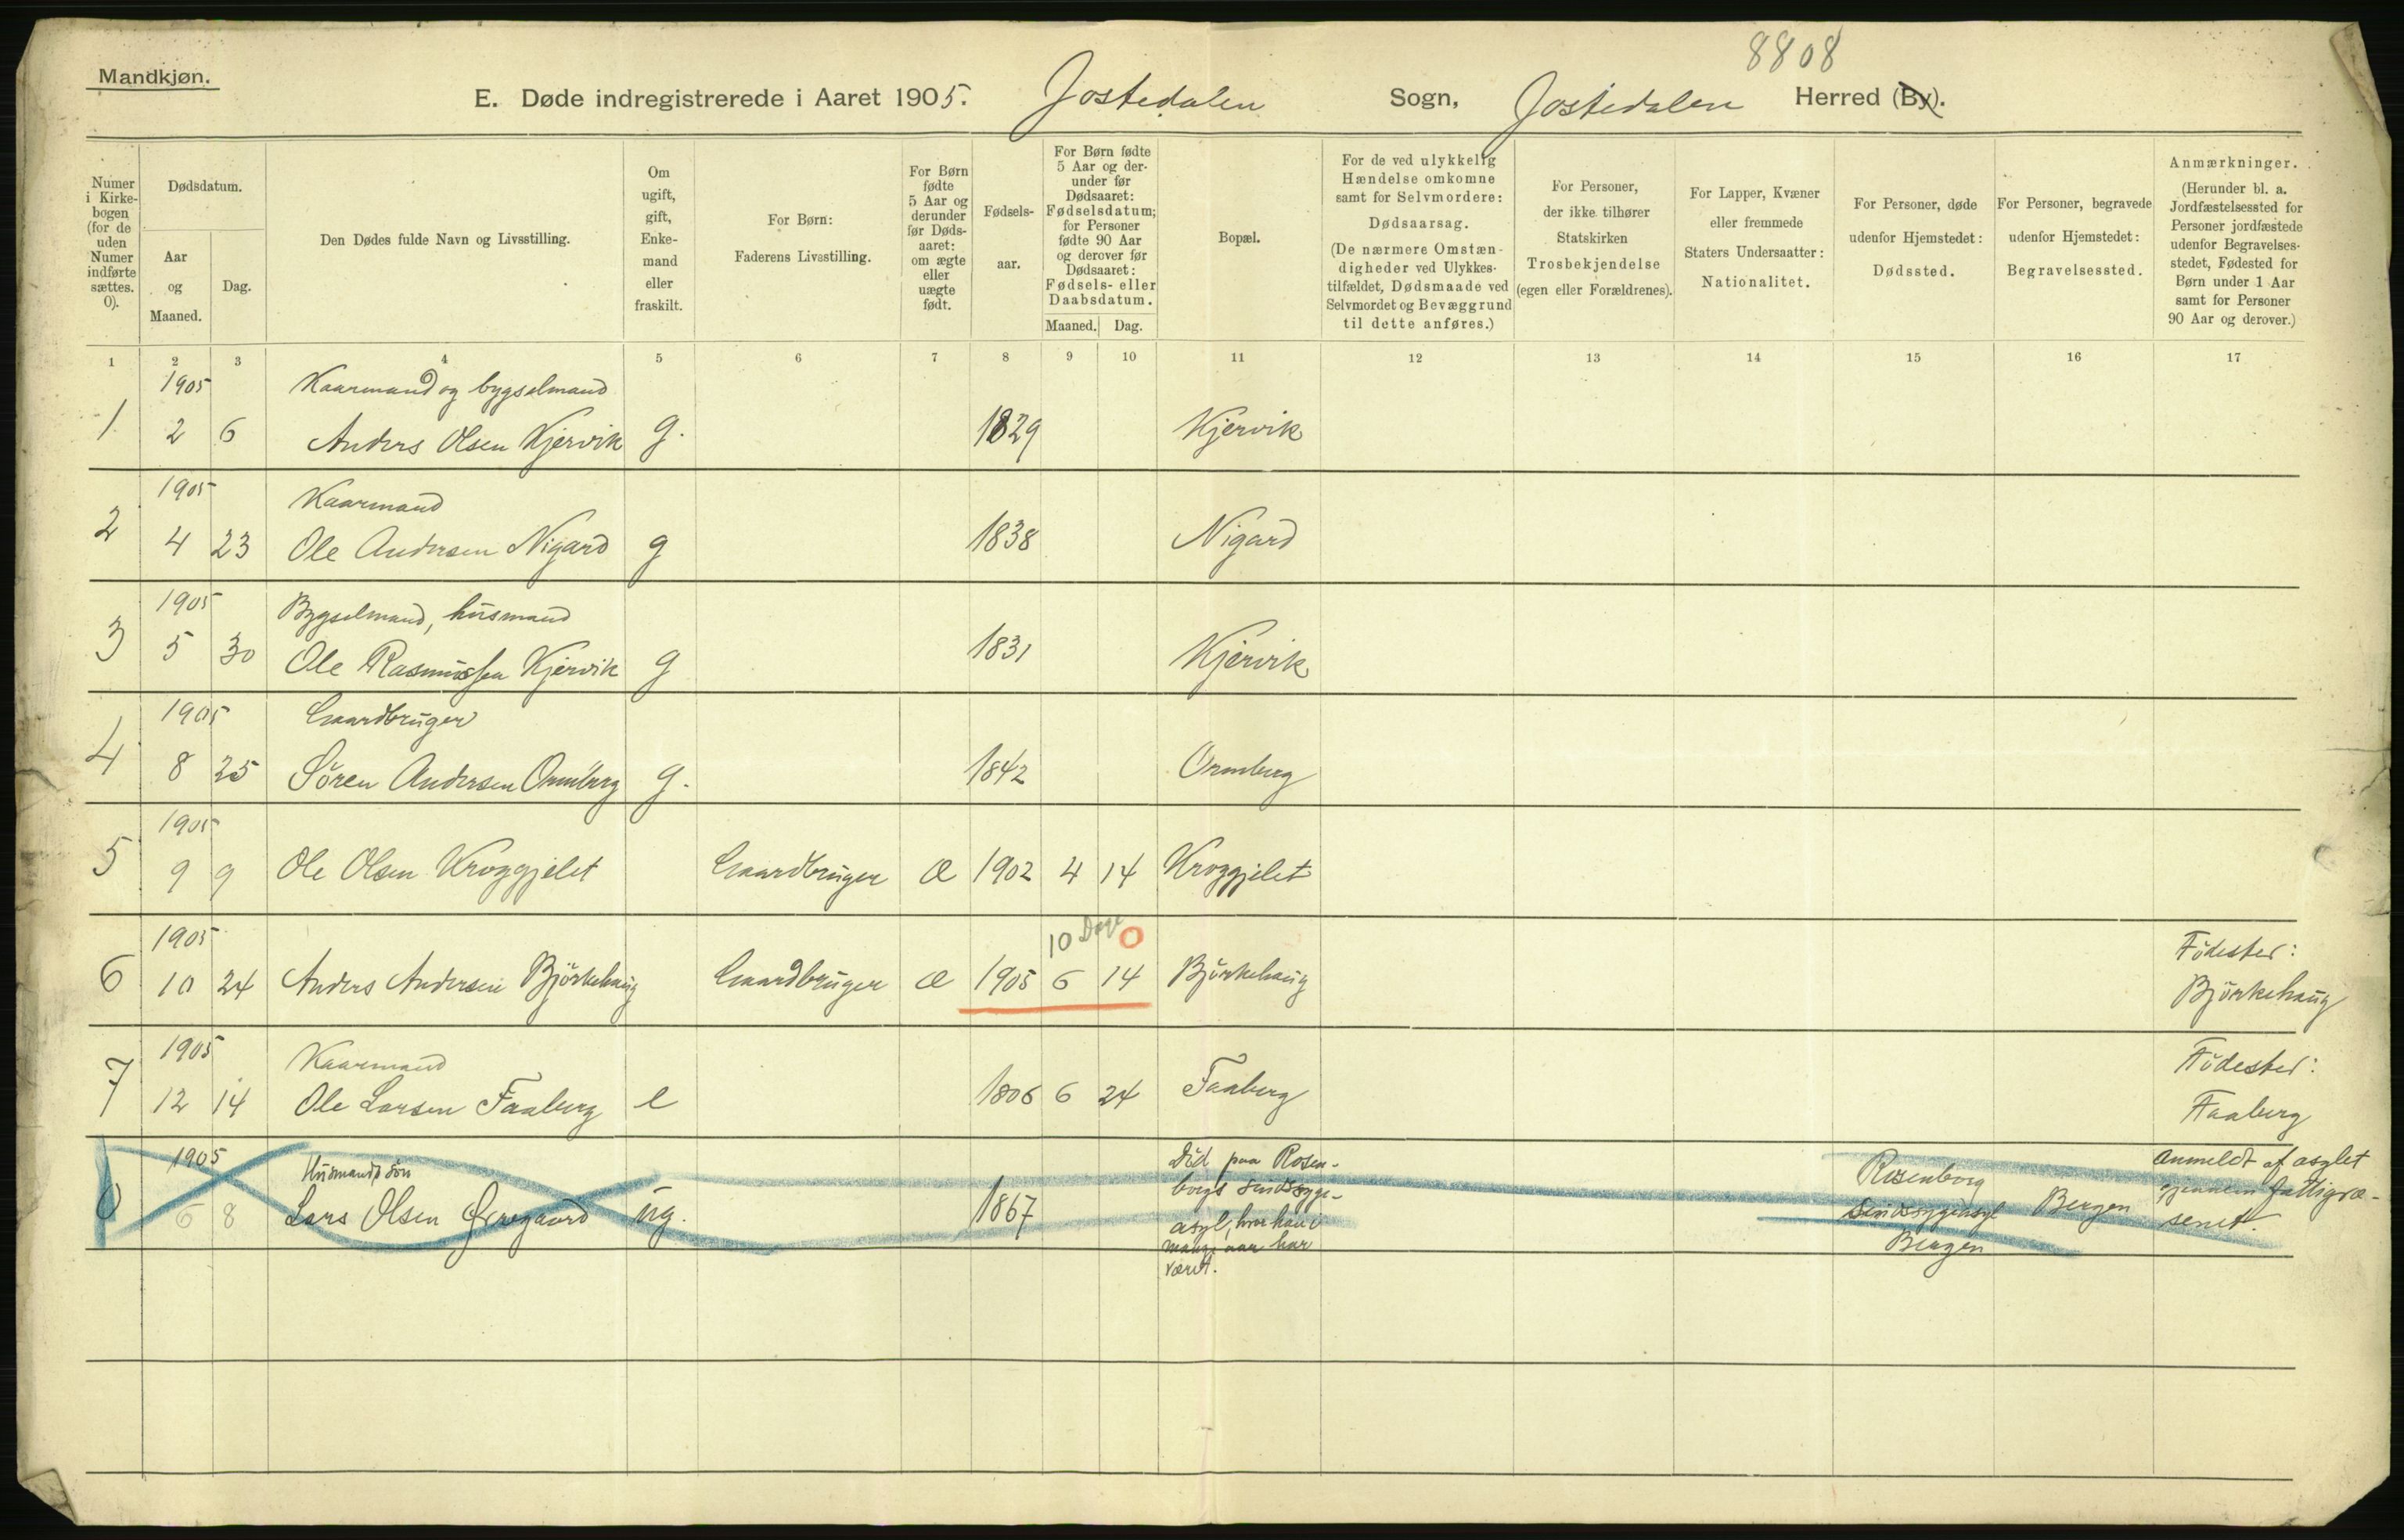 8808
Mandkjøn.
E. Døde indregistrerede i Aaret 1905. Jostedalen Sogn, Jostedalen Herred (By).
Numer i Kirke-bogen (for de uden Numer indførte sættes. 0).
Dødsdatum.
Aar og Maaned.
Dag.
Den Dødes fulde Navn og Livsstilling.
Om ugift, gift, Enke-mand eller fraskilt.
For Børn: Faderens Livsstilling.
For Børn fødte 5 Aar og derunder før Døds-aaret: om ægte eller uægte født.
Fødsels-aar.
For Børn fødte 5 Aar og der-under før Dødsaaret: Fødselsdatum; for Personer fødte 90 Aar og derover før Dødsaaret: Fødsels- eller Daabsdatum.
Maaned. Dag.
Bopæl.
For de ved ulykkelig Hændelse omkomne samt for Selvmordere: Dødsaarsag. (De nærmere Omstæn-digheder ved Ulykkes-tilfældet, Dødsmaade ved Selvmordet og Bevæggrund til dette anføres.)
For Personer, der ikke tilhører Statskirken Trosbekjendelse (egen eller Forældrenes).
For Lapper, Kvæner eller fremmede Staters Undersaatter: Nationalitet.
For Personer, døde udenfor Hjemstedet: Dødssted.
For Personer, begravede udenfor Hjemstedet: Begravelsessted.
Anmærkninger. (Herunder bl. a. Jordfæstelsessted for Personer jordfæstede udenfor Begravelses-stedet, Fødested for Børn under 1 Aar samt for Personer 90 Aar og derover.)
1 2 3 4 5 6 7 8 9 10 11 12 13 14 15 16 17
1905 Kaarmand og bygselmand
1 2 6 Anders Olsen Kjervik g. 1829 Kjervik
1905 Kaarmand
2 4 23 Ole Andersen Nigard g 1838 Nigard
1905 Bygselmand, husmand
3 5 30 Ole Rasmussen Kjervik g 1831 Kjervik
1905 Gaardbruger
4 8 25 Sören Andersen Ormberg g. 1842 Ormberg
1905
5 9 9 Ole Olsen Kroggjelet Gaardbruger Æ 1902 4 14 Kroggjelet
1905 10 Dage 0 Födested:
6 10 24 Anders Andersen Björkehaug Gaardbruger Æ 1905 6 14 Björkehaug Björkehaug
1905 Kaarmand Födested:
7 12 14 Ole Larsen Faaberg e 1806 6 24 Faaberg Faaberg
1905 Husmandssön
0 6 8 Lars Olsen ug. 1867
Död paa Rosen-
borgs sindssyge-
asyl, hvor han i
mange aar har
været.
Rosenborg
Sindssygeasyl
Bergen
Bergen
Anmeldt af asylet
gjennem fattigvæ-
senet.